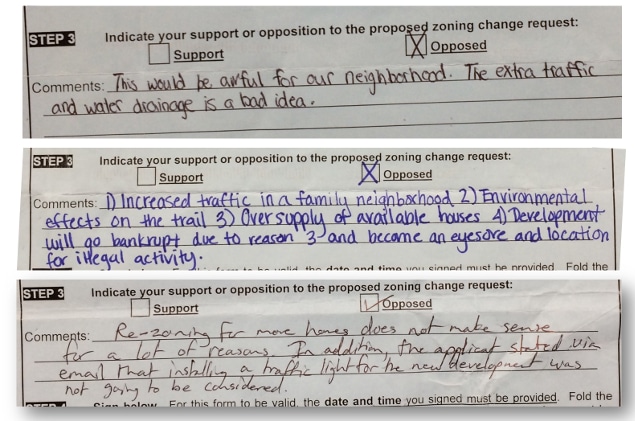 STEP 3 Indicate your support or opposition to the proposed zoning change request:
Support X Opposed
Comments: This would be awful for our neighborhood. The extra traffic
and water drainage is a bad idea.
STEP 3 Indicate your support or opposition to the proposed zoning change request:
Support X Opposed
Comments: 1) Increased traffic in a family neighborhood 2) Environmental
effects on the trail 3) Over supply of available houses 4) Development
will go bankrupt due to reason 3 and become an eyesore and location
for illegal activity.
the date and time you signed must be provided. Fold the
STEP 3 Indicate your support or opposition to the proposed zoning change request:
Support Opposed
Comments: Re-zoning for more homes does not make sense
for a lot of reasons. In addition, the applicat stated via
email that installing a traffic light for the new development was
not going to be considered.
Sign below. For this form to be valid, the date and time you signed must be provided. Fold the